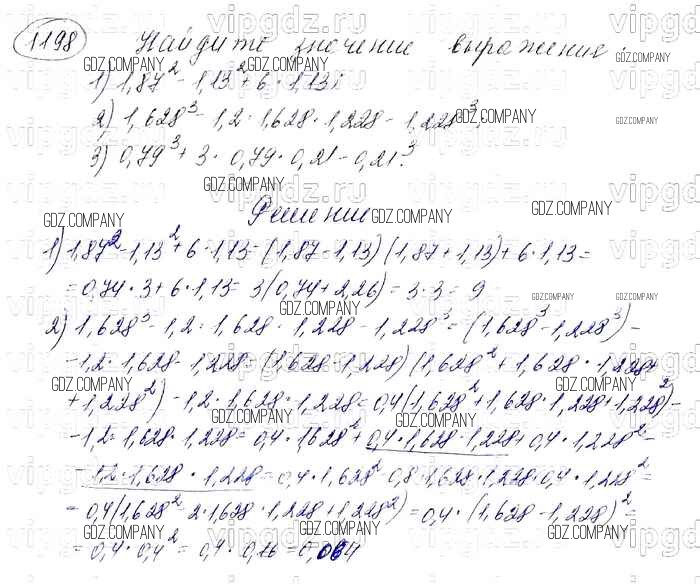 1198 Найдите значение выражения:
1) 1,87² - 1,13² + 6 · 1,13;
2) 1,628³ - 1,2 · 1,628 · 1,228 - 1,228³;
3) 0,79³ + 3 · 0,79 · 0,21 - 0,21³.
Решение
1) 1,87² - 1,13² + 6 · 1,13 = (1,87 - 1,13)(1,87 + 1,13) + 6 · 1,13 =
= 0,74 · 3 + 6 · 1,13 = 3(0,74 + 2,26) = 3 · 3 = 9
2) 1,628³ - 1,2 · 1,628 · 1,228 - 1,228³ = (1,628³ - 1,228³) -
- 1,2 · 1,628 · 1,228 = (1,628 - 1,228)(1,628² + 1,628 · 1,228 +
+ 1,228²) - 1,2 · 1,628 · 1,228 = 0,4(1,628² + 1,628 · 1,228 + 1,228²) -
- 1,2 · 1,628 · 1,228 = 0,4 · 1,628² + 0,4 · 1,628 · 1,228 + 0,4 · 1,228² -
- 1,2 · 1,628 · 1,228 = 0,4 · 1,628² - 0,8 · 1,628 · 1,228 + 0,4 · 1,228² =
= 0,4(1,628² - 2 · 1,628 · 1,228 + 1,228²) = 0,4 · (1,628 - 1,228)² =
= 0,4 · 0,4² = 0,4 · 0,16 = 0,064